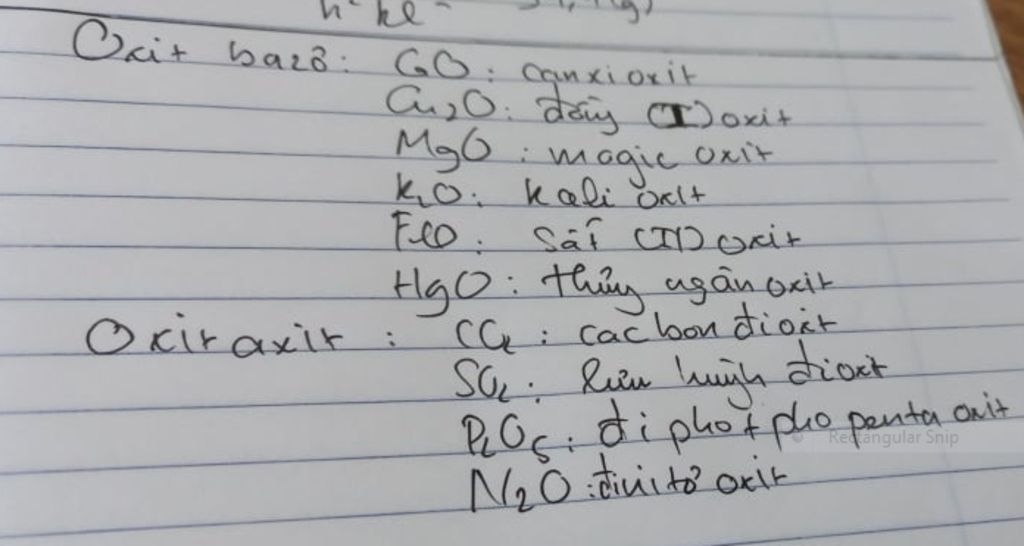 Oxit bazơ: CaO: canxi oxit
Cu2O: đồng (I) oxit
MgO: magie oxit
K2O: kali oxit
FeO: sắt (II) oxit
HgO: thủy ngân oxit
Oxit axit: CO2: cacbon đioxit
SO2: lưu huỳnh đioxit
P2O5: đi photpho penta oxit
Rectangular Snip
N2O: đinitơ oxit